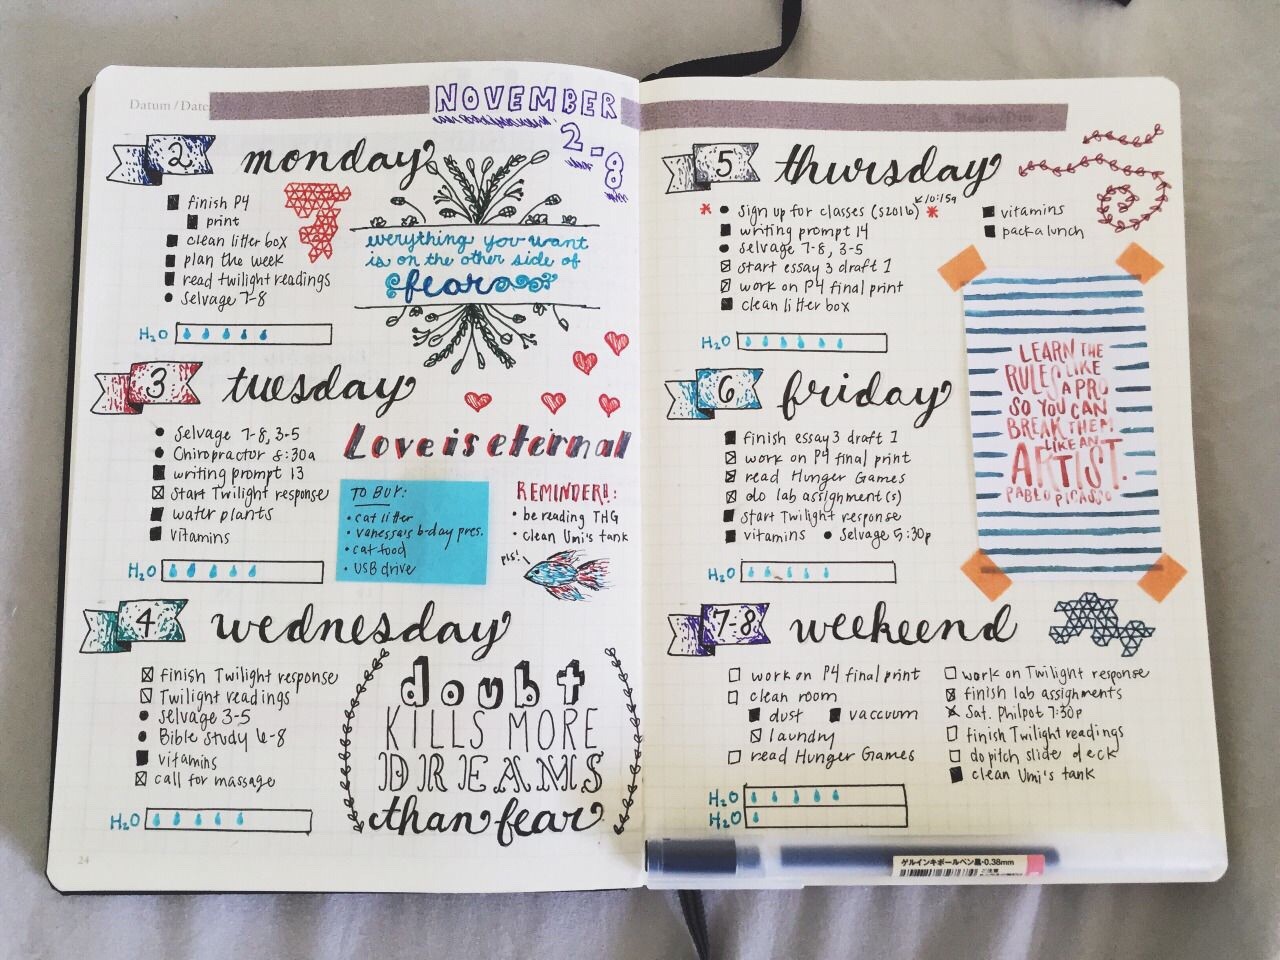 Datum / Date:
NOVEMBER
2-8
2 monday
finish P4
print
clean litter box
plan the week
read twilight readings
Selvage 7-8
H2O
everything you want
is on the other side of
fear
3 tuesday
Selvage 7-8, 3-5
Chiropractor 8:30a
writing prompt 13
Start Twilight response
water plants
vitamins
H2O
Love is eternal
TO BUY:
• cat litter
• vanessa's b-day pres.
• cat food
• USB drive
REMINDER!!:
• be reading THG
• clean Umi's tank
pls!
4 wednesday
finish Twilight response
Twilight readings
Selvage 3-5
Bible Study 6-8
vitamins
call for massage
H2O
doubt
KILLS MORE
DREAMS
than fear
24
5 thursday
10:15a
Sign up for classes (S2016)
writing prompt 14
Selvage 7-8, 3-5
start essay 3 draft 1
work on P4 final print
clean litter box
vitamins
pack a lunch
H2O
6 friday
finish essay 3 draft 1
work on P4 final print
read Hunger Games
do lab assignment(s)
start Twilight response
vitamins • Selvage 5:30p
H2O
LEARN THE
RULES LIKE
A PRO
SO YOU CAN
BREAK THEM
LIKE AN
ARTIST.
PABLO PICASSO
7-8 weekend
work on P4 final print
clean room
dust vaccuum
laundry
read Hunger Games
work on Twilight response
finish lab assignments
Sat. Philpot 7:30p
finish Twilight readings
do pitch slide deck
clean Umi's tank
H2O
H2O
ゲルインキボールペン黒・0.38mm